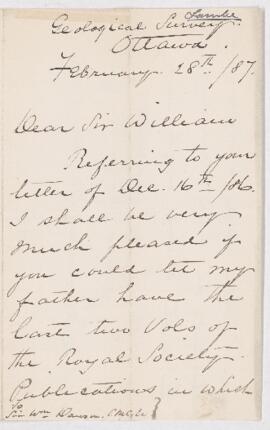 Lambe
Geological Survey.
Ottawa.
February. 28th /87.
Dear Sir William
Referring to your
letter of Dec. 16th /86.
I shall be very
much pleased if
you could let my
father have the
last two Vols of
the Royal Society
Publications in which
To
Sir Wm Dawson, CMG &c